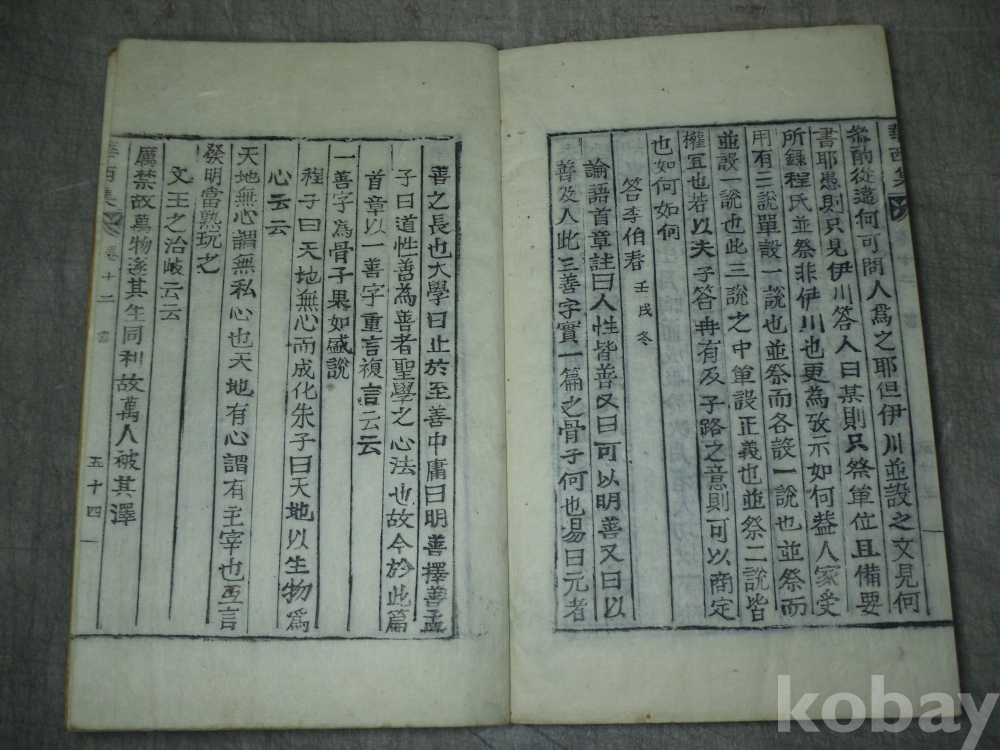 華西集
參酌從違何可問人爲之耶但伊川並設之文見何
書耶愚則只見伊川答人曰某則只祭單位且備要
所錄程氏並祭非伊川也更為攷示如何葢人家受
用有三說單設一說也並祭而各設一說也並祭而
並設一說也此三說之中單設正義也並祭二說皆
權宜也若以夫子答冉有及子路之意則可以商定
也如何如何
答李伯春 壬戌冬
論語首章註曰人性皆善又曰可以明善又曰以
善及人此三善字實一篇之骨子何也易曰元者
善之長也大學曰止於至善中庸曰明善擇善孟
子曰道性善為善者聖學之心法也故今於此篇
首章以一善字重言複言云云
一善字爲骨子果如盛說
程子曰天地無心而成化朱子曰天地以生物爲
心云云
天地無心謂無私心也天地有心謂有主宰也互言
發明當熟玩之
文王之治岐云云
厲禁故萬物遂其生同利故萬人被其澤
華西集 卷十二 五十四
kobay